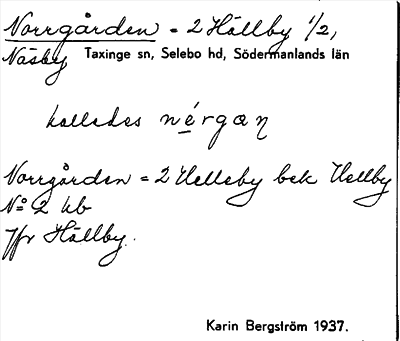 Norrgården = 2 Hällby 1/2,
Näsby Taxinge sn, Selebo hd, Södermanlands län
kallades nérgaɳ
Norrgården = 2 Helleby bek Hellby
No 2 kb
Jfr Hällby.
Karin Bergström 1937.